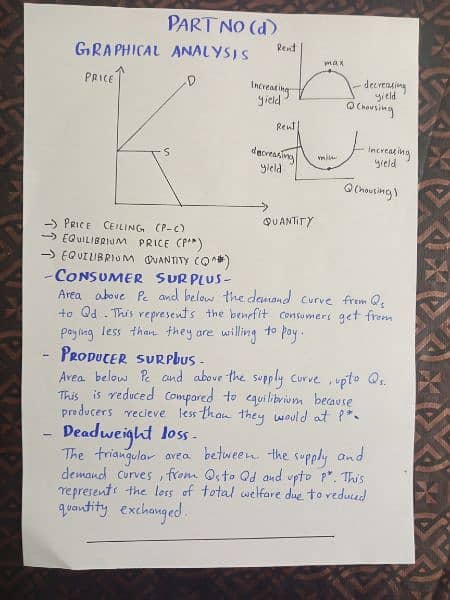 PART NO (d)
GRAPHICAL ANALYSIS
PRICE
D
S
QUANTITY
Rent
max
Increasing
yield
decreasing
yield
Q (housing)
Rent
decreasing
yield
min
increasing
yield
Q (housing)
→ PRICE CEILING (P-C)
→ EQUILIBRIUM PRICE (P^*)
→ EQUILIBRIUM QUANTITY (Q^*)
- CONSUMER SURPLUS -
Area above Pc and below the demand curve from Qs
to Qd. This represents the benefit consumers get from
paying less than they are willing to pay.
- PRODUCER SURPLUS -
Area below Pc and above the supply curve, upto Qs.
This is reduced compared to equilibrium because
producers recieve less than they would at P*.
- Deadweight loss -
The triangular area between the supply and
demand curves, from Qs to Qd and upto P*. This
represents the loss of total welfare due to reduced
quantity exchanged.